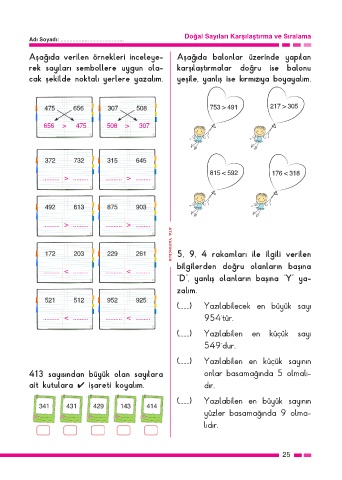 Adı Soyadı: ..............................
Doğal Sayıları Karşılaştırma ve Sıralama
Aşağıda verilen örnekleri inceleye-
rek sayıları sembollere uygun ola-
cak şekilde noktalı yerlere yazalım.
475 656 307 508
656 > 475 508 > 307
372 732 315 645
.......... > .......... .......... > ..........
492 613 875 903
.......... > .......... .......... > ..........
172 203 229 261
.......... < .......... .......... < ..........
521 512 952 925
.......... < .......... .......... < ..........
413 sayısından büyük olan sayılara
ait kutulara ✔ işareti koyalım.
341 431 429 143 414
Aşağıda balonlar üzerinde yapılan
karşılaştırmalar doğru ise balonu
yeşile, yanlış ise kırmızıya boyayalım.
753 > 491 217 > 305
815 < 592 176 < 318
5, 9, 4 rakamları ile ilgili verilen
bilgilerden doğru olanların başına
"D", yanlış olanların başına "Y" ya-
zalım.
(......) Yazılabilecek en büyük sayı
954'tür.
(......) Yazılabilen en küçük sayı
549'dur.
(......) Yazılabilen en küçük sayının
onlar basamağında 5 olmalı-
dır.
(......) Yazılabilen en büyük sayının
yüzler basamağında 9 olma-
lıdır.
25